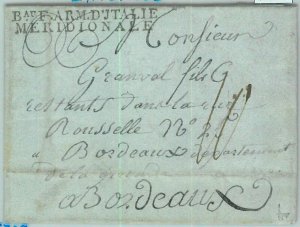 Bau F. ARM. D'ITALIE
MERIDIONALE
Monsieur
Granval fils
restants dans la rue
Rousselle No 25
a Bordeaux departement
de la gironde
a Bordeaux